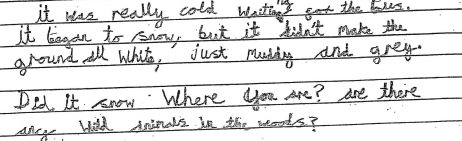 it was really cold waiting for the bus.
it began to snow, but it didn't make the
ground all white, just muddy and grey.
Did it snow Where you are? are there
any wild animals in the woods?